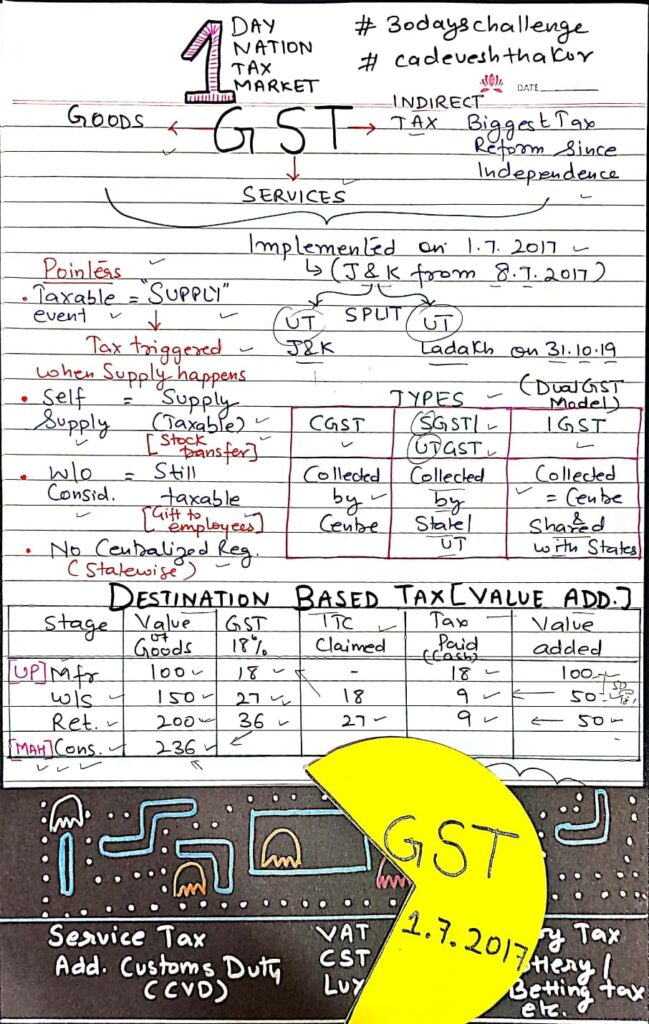 1 DAY
NATION
TAX
MARKET
# 30dayschallenge
# cadeveshthakur
DATE
GOODS ← GST → INDIRECT TAX
Biggest Tax
Reform Since
Independence
↓
SERVICES
Implemented on 1.7.2017
↳ (J&K from 8.7.2017)
UT SPLIT UT
J&K Ladakh on 31.10.19
Pointers
• Taxable = "SUPPLY"
event
↓
Tax triggered
when Supply happens
• Self = Supply
Supply (Taxable)
[Stock
transfer]
• W/o = Still
Consid. taxable
[Gift to
employees]
• No Centralized Reg.
(Statewise)
TYPES (Dual GST
Model)
CGST | SGST/ UTGST | IGST
Collected by Centre | Collected by State/ UT | Collected = Centre & Shared with States
DESTINATION BASED TAX [VALUE ADD.]
Stage | Value of Goods | GST 18% | ITC Claimed | Tax Paid (Cash) | Value added
[UP] Mfr | 100 | 18 | - | 18 | 100
W/S | 150 | 27 | 18 | 9 | ← 50
Ret. | 200 | 36 | 27 | 9 | ← 50
[MAH] Cons. | 236
GST
1.7.2017
Service Tax
Add. Customs Duty
(CVD)
VAT
CST
Lux
y Tax
ttery/
Betting tax
etc.